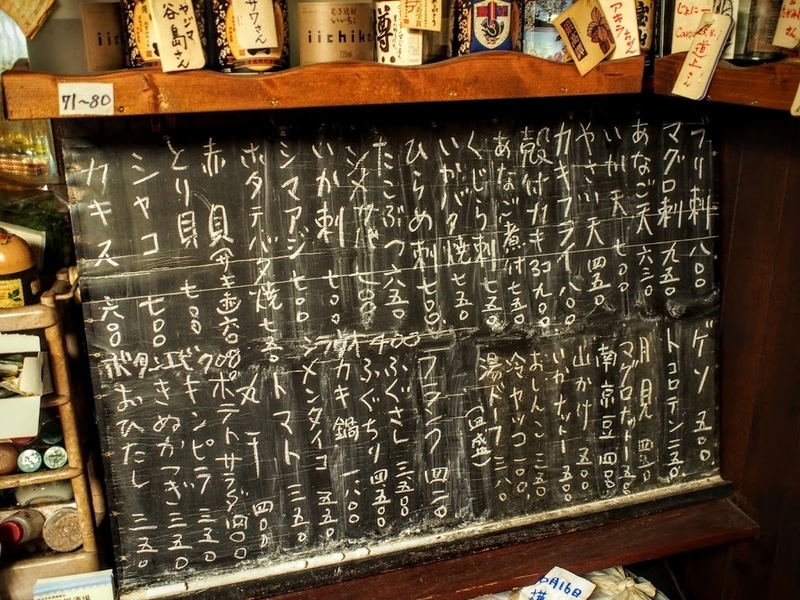 ヤジマ
谷島さん
サワさん
iichiko
樽
アキちゃん
道上さん
71~80
ブリ刺 八〇〇
マグロ刺 九五〇
あなご天 六三〇
いか天 七〇〇
やさい天 四五〇
カキフライ 八〇〇
殻付カキ3コ 九〇〇
あなご煮付 七五〇
くじら刺 七五〇
いかバタ焼 七五〇
ひらめ刺 七〇〇
たこぶつ 六五〇
シメサバ 七〇〇
いか刺 七〇〇
シマアジ 七〇〇
ホタテバタ焼 七五〇
赤貝
とり貝 七〇〇
シャコ 七〇〇
カキス 六〇〇
ゲソ 五〇〇
トコロテン 三五〇
月見 四五〇
マグロナットー
南京豆 四〇〇
山かけ 五〇〇
いかナットー 五〇〇
おしんこ 三五〇
冷ヤッコ 一〇〇
湯ドーフ 三八〇
(四盛)
フランク 四五〇
シラウオ 400
ふぐさし 三五〇〇
ふぐちり 四五〇〇
カキ鍋 一八〇〇
メンタイコ 五五〇
トマト 三五〇
丸干 四〇〇
ポテトサラダ 四〇〇
キンピラ 三五〇
きぬかつぎ 三五〇
おひたし 三五〇
ボタンエビ
月16日